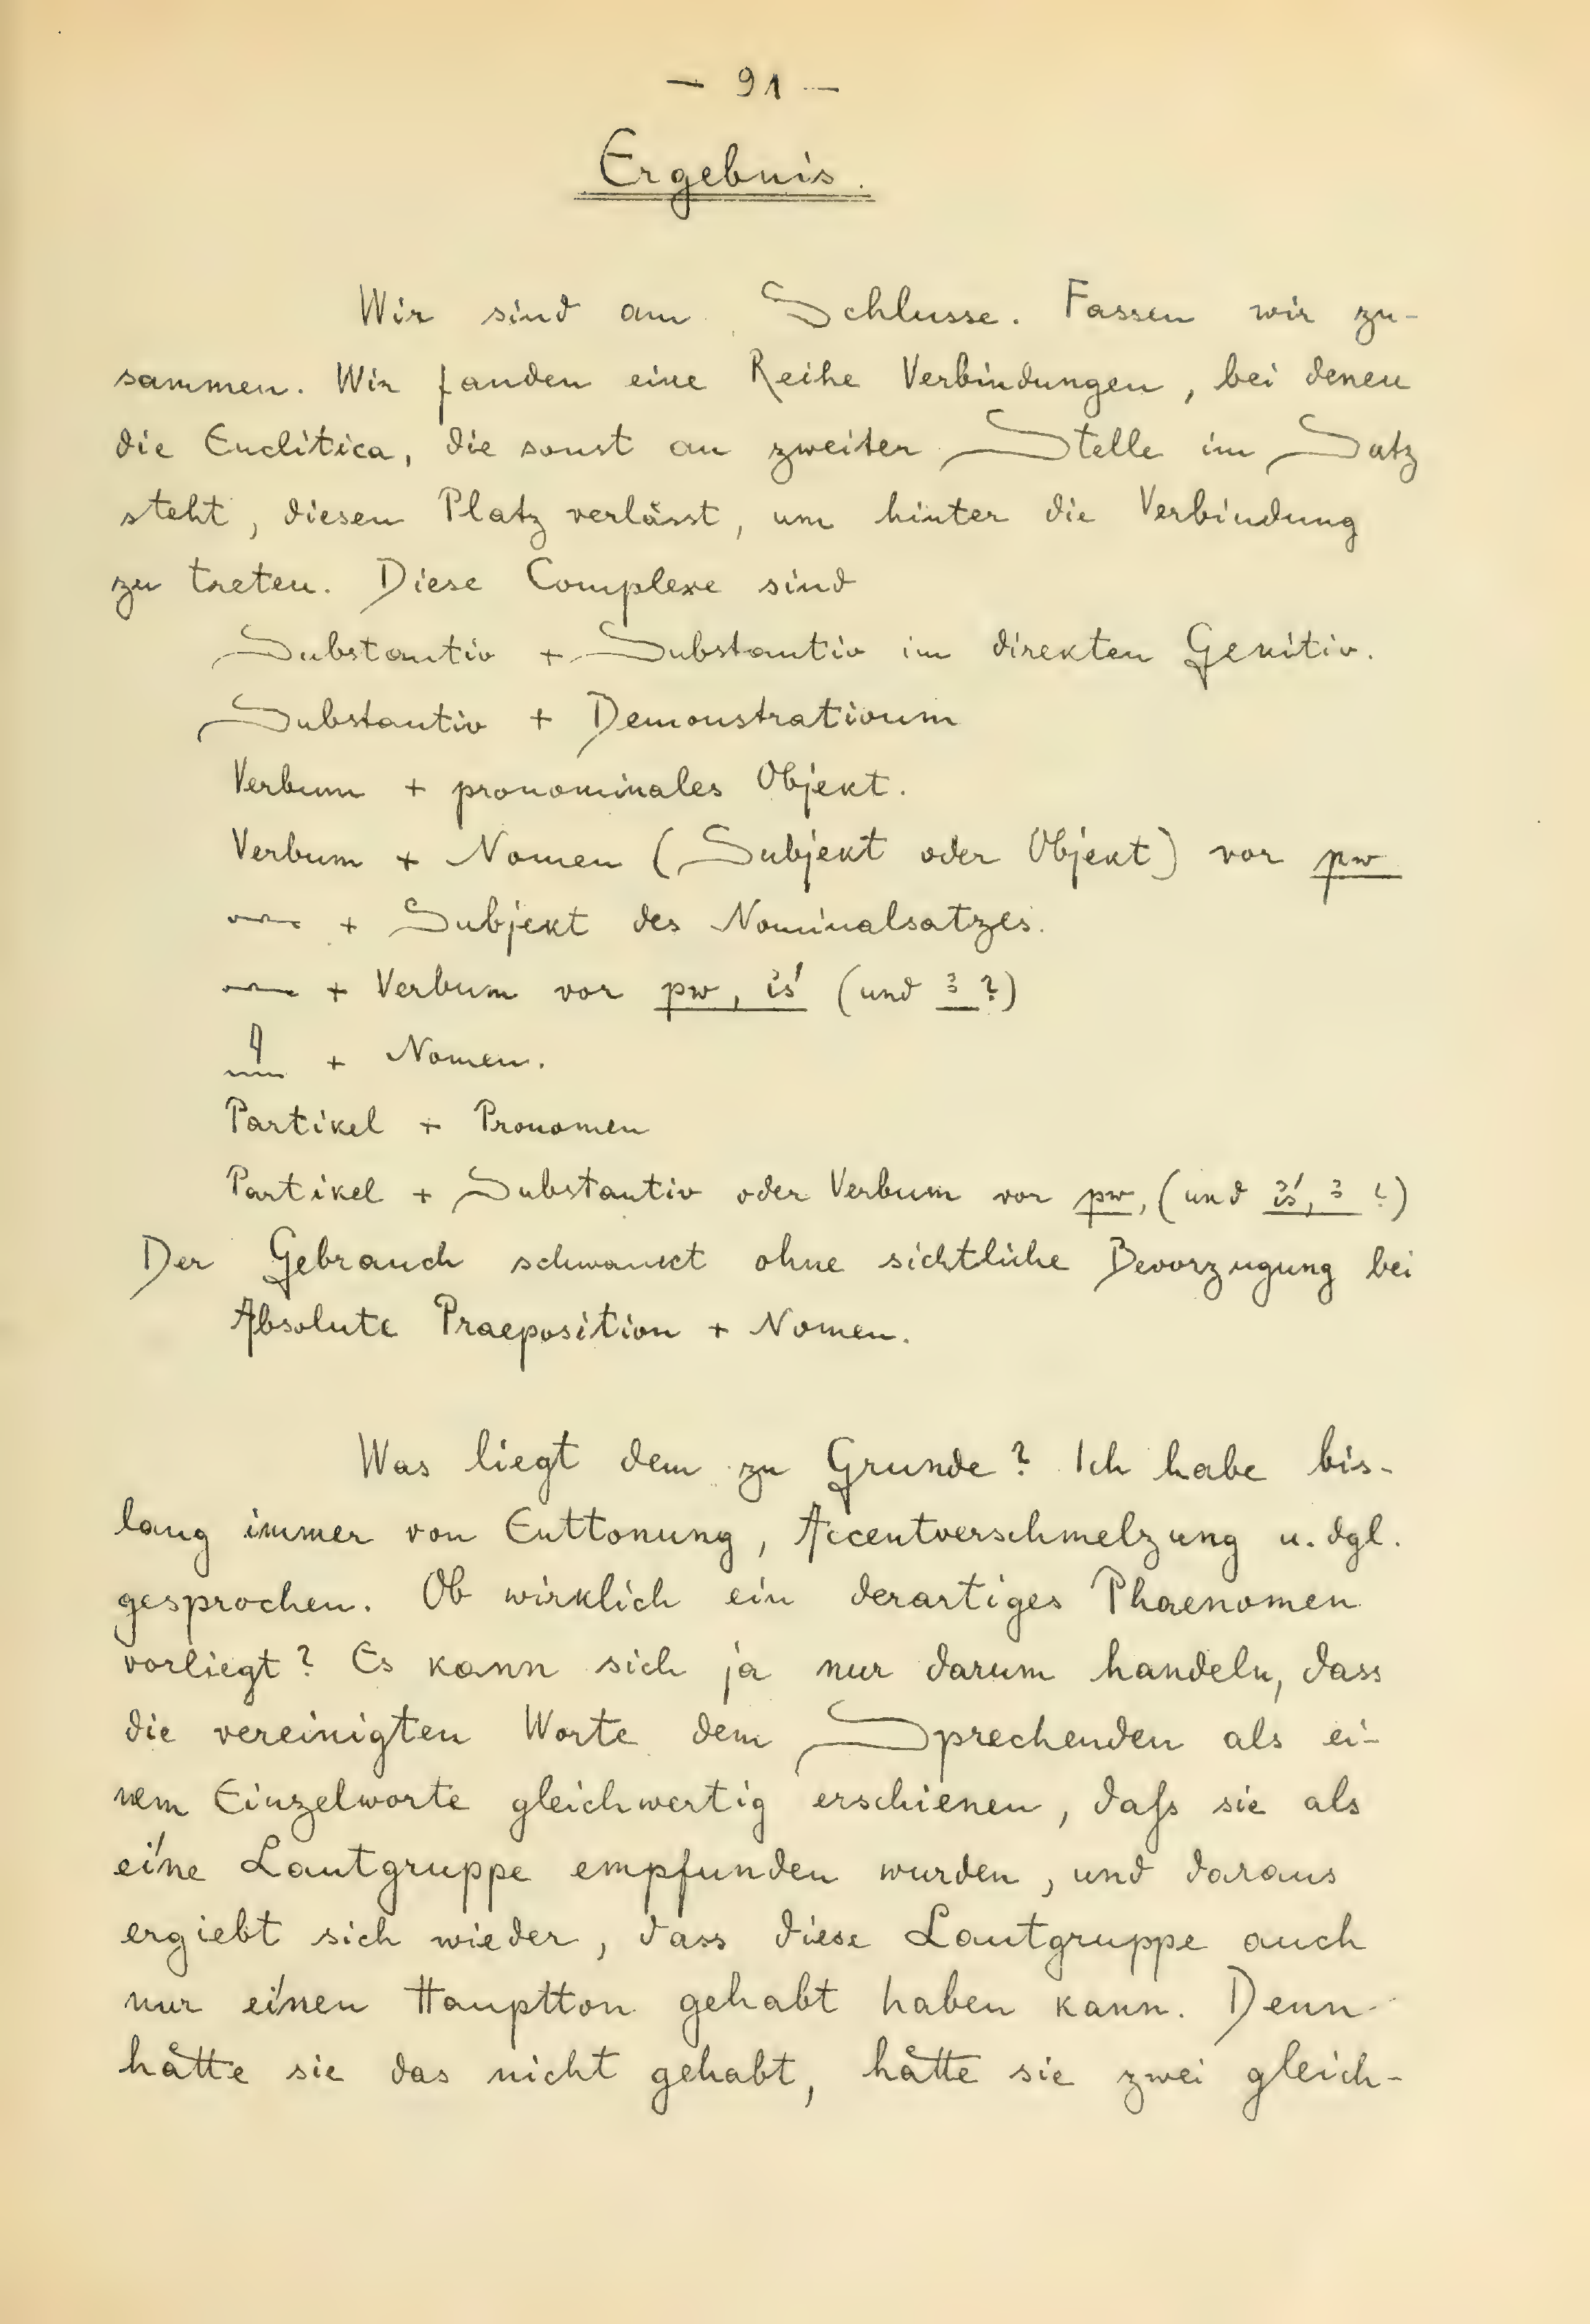 — 91 —
Ergebnis.
Wir sind am Schlusse. Fassen wir zu-
sammen. Wir fanden eine Reihe Verbindungen, bei denen
die Enclitica, die sonst an zweiter Stelle im Satz
steht, diesen Platz verlässt, um hinter die Verbindung
zu treten. Diese Complexe sind
Substantiv + Substantiv im direkten Genitiv.
Substantiv + Demonstrativum
Verbum + pronominales Objekt.
Verbum + Nomen (Subjekt oder Objekt) vor pw
𓂜 + Subjekt des Nominalsatzes.
𓂜 + Verbum vor pw, ἰś (und ꜣ ?)
𓇋𓈖 + Nomen.
Partikel + Pronomen
Partikel + Substantiv oder Verbum vor pw, (und ἰś, ꜣ ?)
Der Gebrauch schwankt ohne sichtliche Bevorzugung bei
Absolute Praeposition + Nomen.
Was liegt dem zu Grunde? Ich habe bis-
lang immer von Enttonung, Accentverschmelzung u. dgl.
gesprochen. Ob wirklich ein derartiges Phaenomen
vorliegt? Es kann sich ja nur darum handeln, dass
die vereinigten Worte dem Sprechenden als ei-
nem Einzelworte gleichwertig erschienen, daſs sie als
eíne Lautgruppe empfunden wurden, und daraus
ergiebt sich wieder, dass diese Lautgruppe auch
nur eínen Hauptton gehabt haben kann. Denn
hätte sie das nicht gehabt, hätte sie zwei gleich-